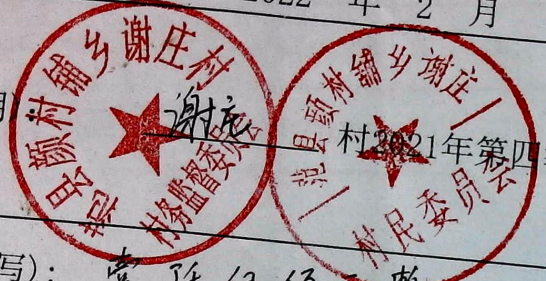 2022 年 2 月
范县颜村铺乡谢庄村
村务监督委员会
范县颜村铺乡谢庄
村民委员会
谢庄 村2021年第四
写):